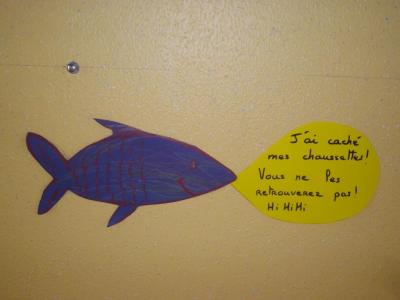 J'ai caché
mes chaussettes!
Vous ne les
retrouverez pas!
Hi Hi Hi